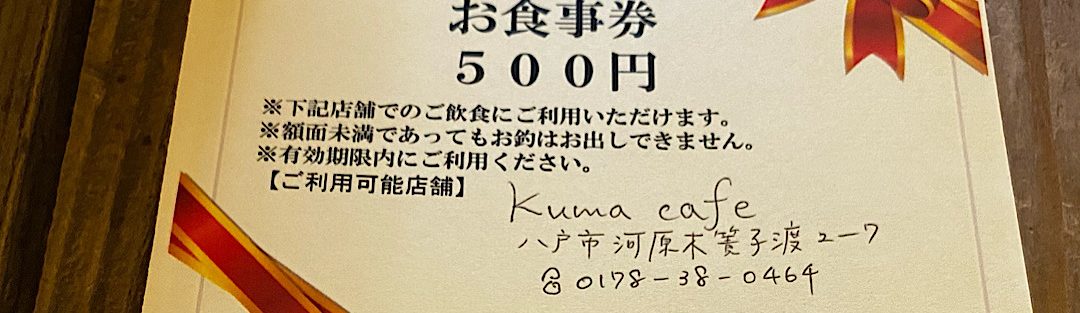 お食事券
５００円
※下記店舗でのご飲食にご利用いただけます。
※額面未満であってもお釣はお出しできません。
※有効期限内にご利用ください。
【ご利用可能店舗】
Kuma cafe
八戸市河原木簀子渡2-7
☎0178-38-0464